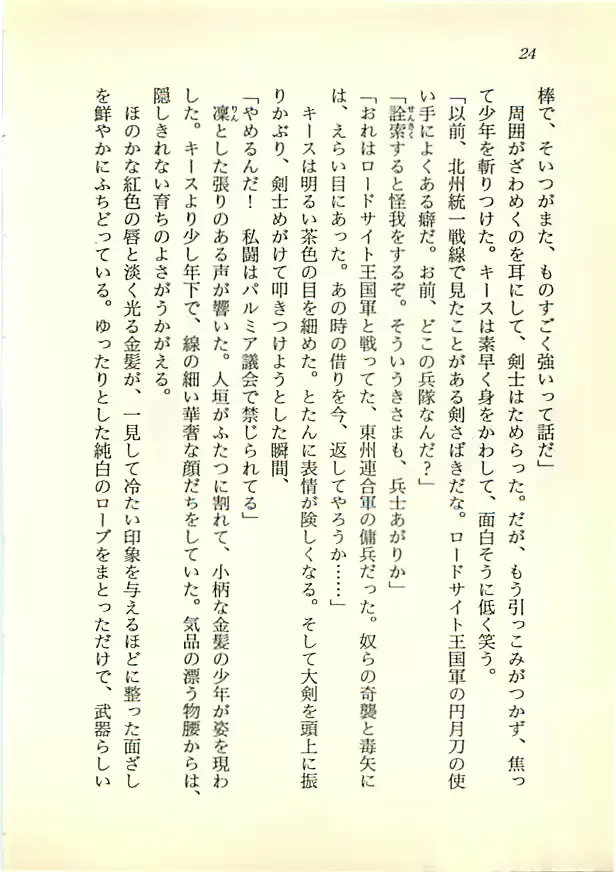 24
棒で、そいつがまた、ものすごく強いって話だ」
　周囲がざわめくのを耳にして、剣士はためらった。だが、もう引っこみがつかず、焦っ
て少年を斬りつけた。キースは素早く身をかわして、面白そうに低く笑う。
「以前、北州統一戦線で見たことがある剣さばきだな。ロードサイト王国軍の円月刀の使
い手によくある癖だ。お前、どこの兵隊なんだ？」
「詮索すると怪我をするぞ。そういうきさまも、兵士あがりか」
「おれはロードサイト王国軍と戦ってた、東州連合軍の傭兵だった。奴らの奇襲と毒矢に
は、えらい目にあった。あの時の借りを今、返してやろうか……」
　キースは明るい茶色の目を細めた。とたんに表情が険しくなる。そして大剣を頭上に振
りかぶり、剣士めがけて叩きつけようとした瞬間、
「やめるんだ！　私闘はパルミア議会で禁じられてる」
　凜とした張りのある声が響いた。人垣がふたつに割れて、小柄な金髪の少年が姿を現わ
した。キースより少し年下で、線の細い華奢な顔だちをしていた。気品の漂う物腰からは、
隠しきれない育ちのよさがうかがえる。
　ほのかな紅色の唇と淡く光る金髪が、一見して冷たい印象を与えるほどに整った面ざし
を鮮やかにふちどっている。ゆったりとした純白のローブをまとっただけで、武器らしい